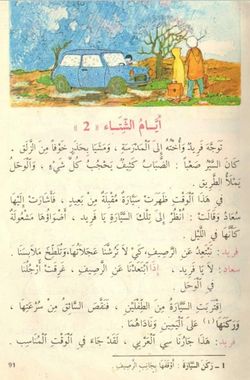 أَيَّـامُ الشِّتَـاء « 2 »
تَوَجَّهَ فَرِيدٌ وَأُخْتُهُ إِلَى الْمَدْرَسَةِ ، وَمَشَيَا بِحَذَرٍ خَوْفًا مِنَ الزَّلَقِ .
كَانَ السَّيْرُ صَعْبًا : الضَّبَابُ كَثِيفٌ يَحْجُبُ كُلَّ شَيْءٍ ، وَالْوَحَلُ
يَمْلَأُ الطَّرِيقَ .
فِي هَذَا الْوَقْتِ ظَهَرَتْ سَيَّارَةٌ مُقْبِلَةٌ مِنْ بَعِيدٍ ، فَأَشَارَتْ إِلَيْهَا
سُعَادُ وَقَالَتْ : اُنْظُرْ إِلَى تِلْكَ السَّيَّارَةِ يَا فَرِيد ، أَضْوَاؤُهَا مَشْعُولَةٌ
كَأَنَّهَا فِي اللَّيْلِ .
فريد: لِنَبْتَعِدْ عَنِ الرَّصِيفِ، كَيْ لَا تَرُشَّنَا عَجَلَاتُهَا، وَتُلَطِّخَ مَلَابِسَنَا .
سعاد: لَا يَا فَرِيد، إِذَا ابْتَعَدْنَا عَنِ الرَّصِيفِ ، غَرِقَتْ أَرْجُلُنَا
فِي الْوَحَلِ .
اِقْتَرَبَتِ السَّيَّارَةُ مِنَ الطِّفْلَيْنِ ، فَنَقَصَ السَّائِقُ مِنْ سُرْعَتِهَا ،
وَرَكَنَهَا (1) عَلَى الْيَمِينِ وَنَادَاهُمَا .
فريد: هَذَا جَارُنَا سِي الْعَرْبِي . لَقَدْ جَاءَ فِي الْوَقْتِ الْمُنَاسِبِ .
1 - رَكَنَ السَّيَّارَةَ : أَوْقَفَهَا بِجَانِبِ الرَّصِيفِ .
91